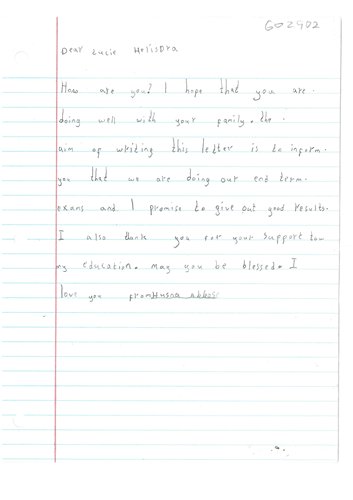 602902
Dear Lucie Holisora
How are you? I hope that you are.
doing well with your family. the.
aim of writing this letter is to inform.
you that we are doing our end term.
exans and I promise to give out good results.
I also thank you for your support tow
my education. may you be blessed. I
love you from Husna abbas